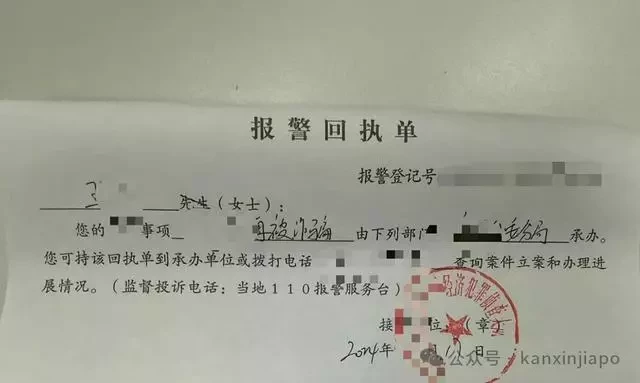 报警回执单
报警登记号
王 先生（女士）：
您的 事项 被诈骗 由下列部 分局 承办。
您可持该回执单到承办单位或拨打电话 查询案件立案和办理进
展情况。（监督投诉电话：当地110报警服务台）
经济犯罪侦查
接 位 （章）
年 月 日
公众号 · kanxinjiapo